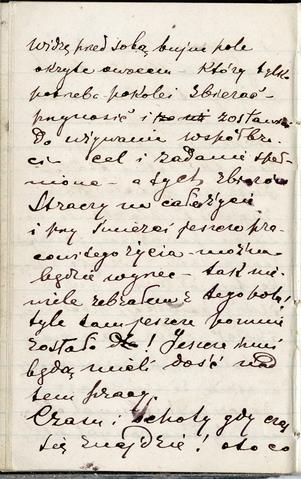 widzę przed sobą bujne pole
okryte owocem - który tylko
potrzeba zbierać
przynosić i zostawić
do używania współbra-
ci - cel i zadanie speł-
nione - a tych zbiorów
Starczy na całe życie
i przy śmierci jeszcze pra-
cowitego życia - można
będzie wyrzec - tak nie
wiele zebrałem z tego pola!
tyle tam jeszcze
zostało ! Jeszcze inni
będą mieli dość nad
tem pracy.
Czasu i ochoty gdy
się znajdzie! oto co